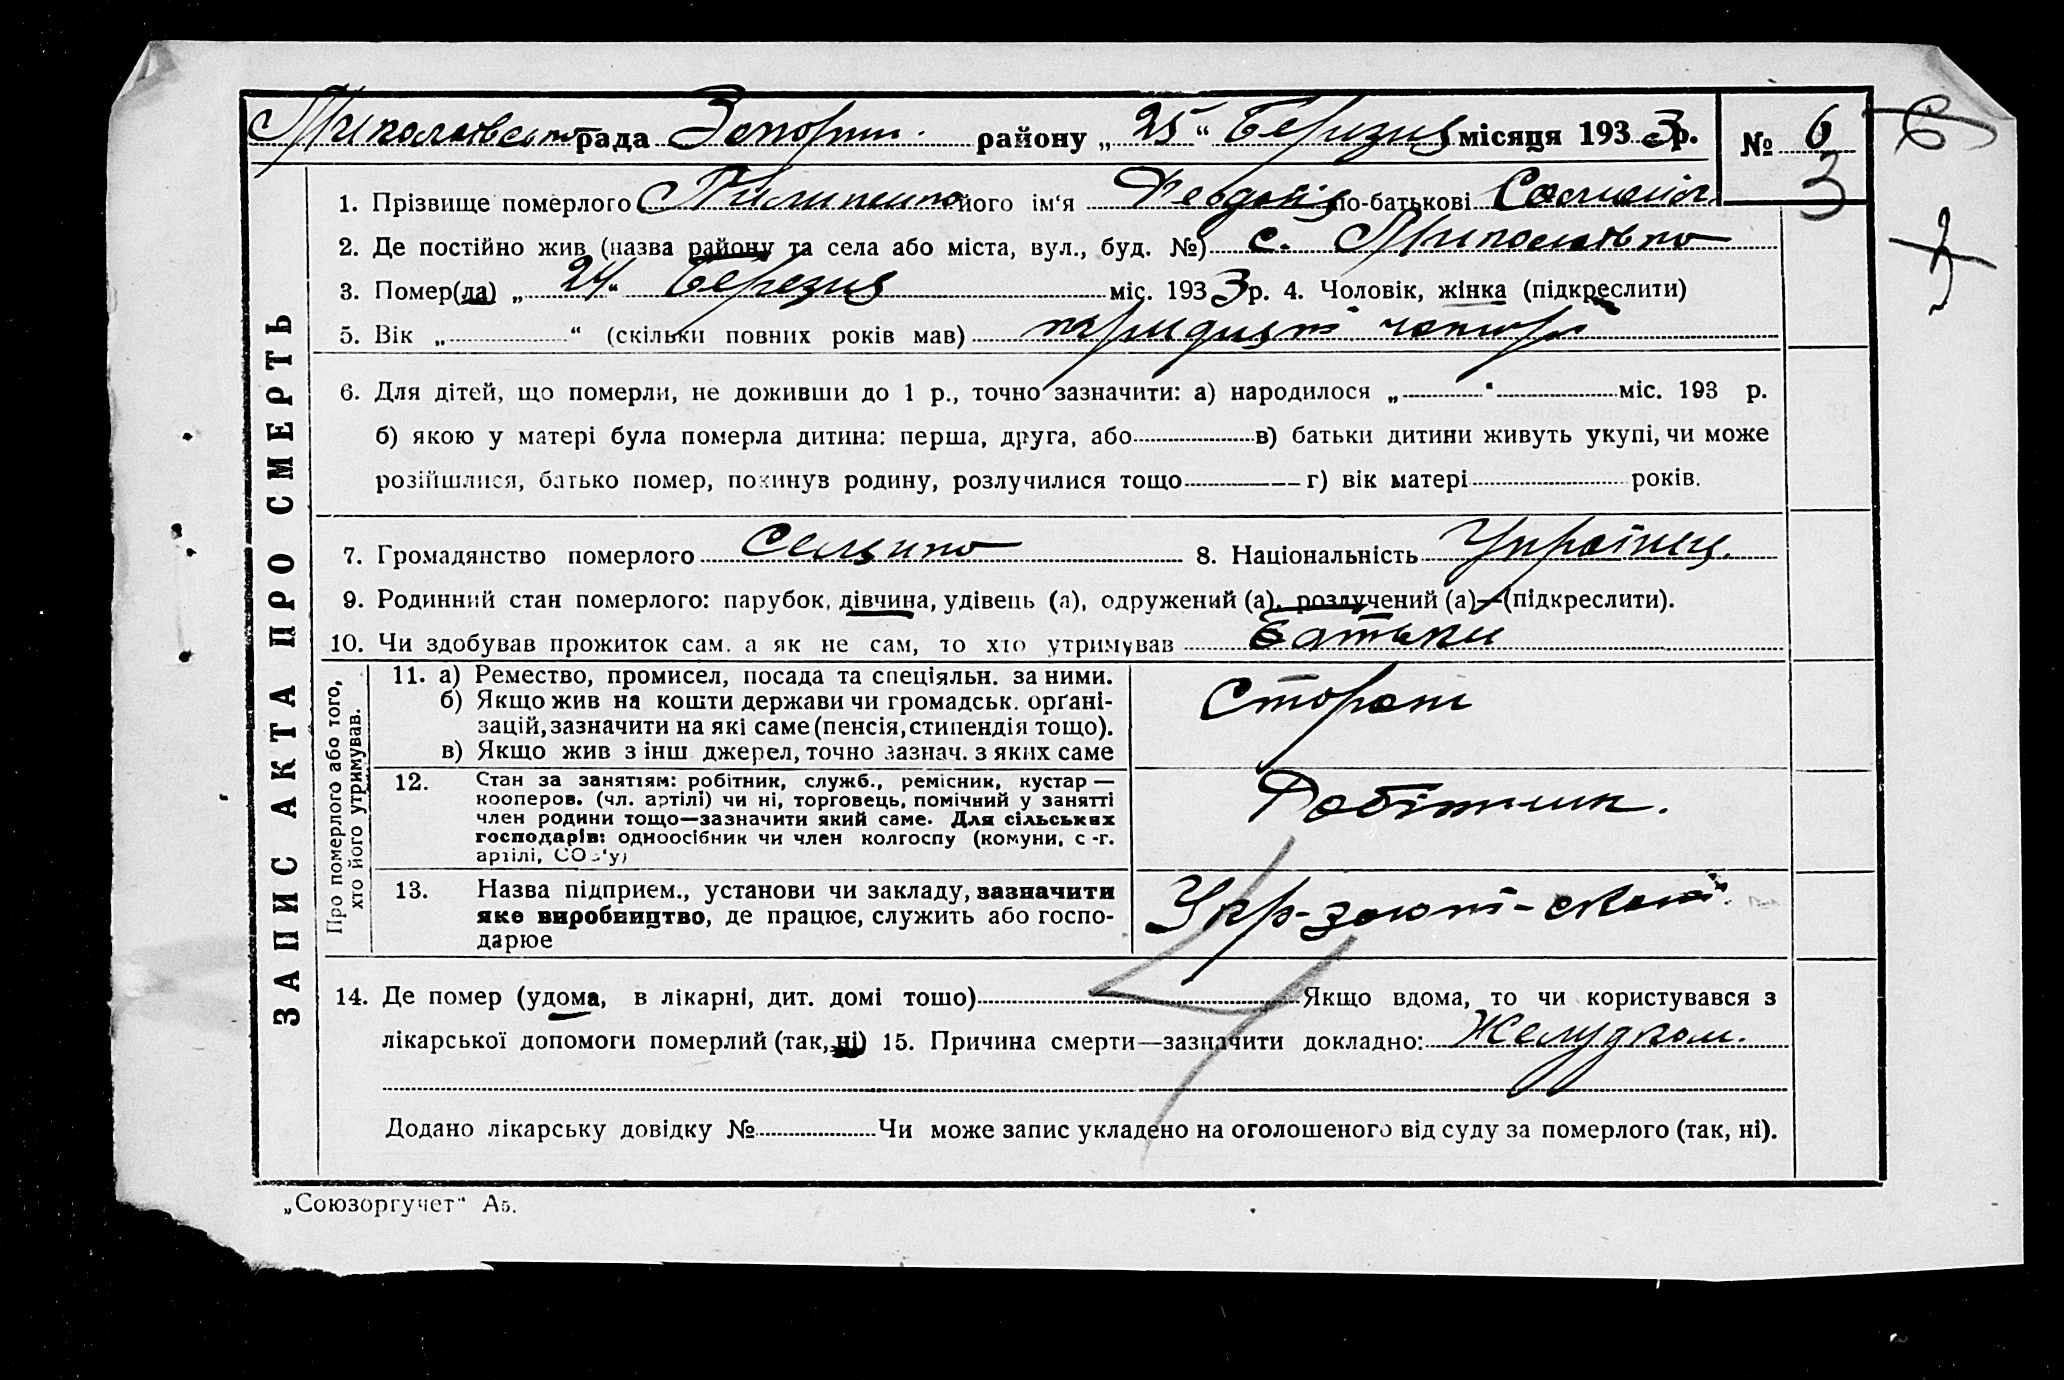 Миколаївська рада Запоріж. району „25“ Березня місяця 1933 р. № 6
3
1. Прізвище померлого Пилипенко його ім'я Февдокія по-батькові
2. Де постійно жив (назва району та села або міста, вул., буд. №) с. Миколаївка
3. Помер(ла) „24“ Березня міс. 1933 р. 4. Чоловік, жінка (підкреслити)
5. Вік „ “ (скільки повних років мав) тридцять чотирі
6. Для дітей, що померли, не доживши до 1 р., точно зазначити: а) народилося „ “ міс. 193 р.
б) якою у матері була померла дитина: перша, друга, або в) батьки дитини живуть укупі, чи може
розійшлися, батько помер, покинув родину, розлучилися тощо г) вік матері років.
7. Громадянство померлого Селянко 8. Національність Українец.
9. Родинний стан померлого: парубок, дівчина, удівець (а), одружений (а), розлучений (а)—(підкреслити).
10. Чи здобував прожиток сам, а як не сам, то хто утримував батьки
Про померлого або того,
хто його утримував.
11. а) Ремество, промисел, посада та спеціяльн. за ними.
б) Якщо жив на кошти держави чи громадськ. орґані-
зацій, зазначити на які саме (пенсія, стипендія тощо).
в) Якщо жив з інш джерел, точно зазнач. з яких саме
Сторож
12. Стан за заняттям: робітник, служб., ремісник, кустар —
кооперов. (чл. артілі) чи ні, торговець, помічний у занятті
член родини тощо—зазначити який саме. Для сільських
господарів: одноосібник чи член колгоспу (комуни, с-г.
артілі, СОЗ'у)
Робітник.
13. Назва підприєм., установи чи закладу, зазначити
яке виробництво, де працює, служить або госпо-
дарює
14. Де помер (удома, в лікарні, дит. домі тошо) Якщо вдома, то чи користувався з
лікарської допомоги померлий (так, ні) 15. Причина смерти—зазначити докладно: Желудком.
Додано лікарську довідку № Чи може запис укладено на оголошеного від суду за померлого (так, ні).
ЗАПИС АКТА ПРО СМЕРТЬ
„Союзоргучет" А5.